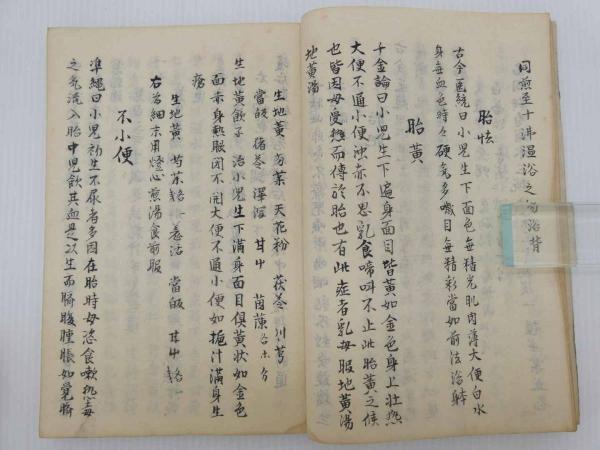 同煎至十沸温浴之勿浴背
胎怯
古今医統曰小児生下面色無精光肌肉薄大便白水
身無血色時々硬気多噦目無精彩當如前法浴躰
胎黄
千金論曰小児生下遍身面目皆黄如金色身上壮熱
大便不通小便浊赤不思乳食啼叫不止此胎黄之候
也皆因母受熱而傳於胎也有此症者乳母服地黄湯
地黄湯
生地黄 芍薬 天花粉 茯苓 川芎
當皈 猪苓 澤瀉 甘艸 茵蔯 各等分
生地黄飲子 治小児生下満身面目俱黄状如金色
面赤身熱眼闭不開大便不通小便如梔汁満身生
瘡
生地黄 芍薬 各二戋 羌活 當皈 甘艸 各一戋
右為細末用燈心煎湯食前服
不小便
準縄曰小児初生不尿者多因在胎時母恣食噉熱毒
之気流入胎中児飲其血是以生而臍腹腫脹如覚臍